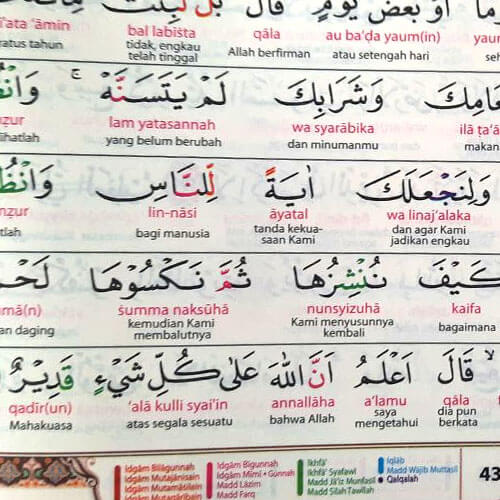 أَوْ بَعْضَ يَوْمٍ قَالَ بَلْ لَبِثْتَ
au ba'ḍa yaum(in) qāla bal labiṡta
atau setengah hari Allah berfirman tidak, engkau
telah tinggal
وَشَرَابِكَ لَمْ يَتَسَنَّهْ ۚ
wa syarābika lam yatasannah
dan minumanmu yang belum berubah
وَلِنَجْعَلَكَ اٰيَةً لِّلنَّاسِ
wa linaj'alaka āyatal lin-nāsi
dan agar Kami tanda kekua- bagi manusia
jadikan engkau saan Kami
كَيْفَ نُنْشِزُهَا ثُمَّ نَكْسُوْهَا
kaifa nunsyizuhā ṡumma naksūhā
bagaimana Kami menyusunnya kemudian Kami
kembali membalutnya
قَالَ اَعْلَمُ اَنَّ اللّٰهَ عَلٰى كُلِّ شَيْءٍ قَدِيْرٌ
qāla a'lamu annallāha 'alā kulli syai'in qadīr(un)
dia pun saya bahwa Allah atas segala sesuatu Mahakuasa
berkata mengetahui
Idgām Bilāgunnah Idgām Bigunnah Ikhfā' Iqlāb
Idgām Mutajānisain Idgām Mīmī + Gunnah Ikhfā' Syafawī Madd Wājib Muttaṣil
Idgām Mutamāṡilain Madd Lāzim Madd Jā'iz Munfaṣil Qalqalah
Idgām Mutaqāribain Madd Farq Madd Ṣilah Ṭawīlah
43